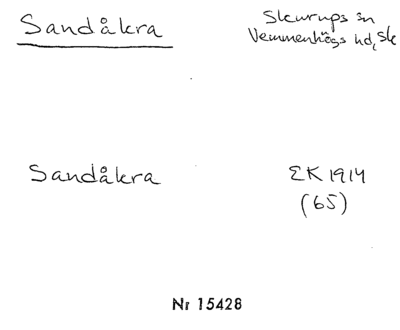 Sandåkra
Skurups sn
Vemmenhögs hd, Sk
Sandåkra
EK 1914
(65)
Nr 15428